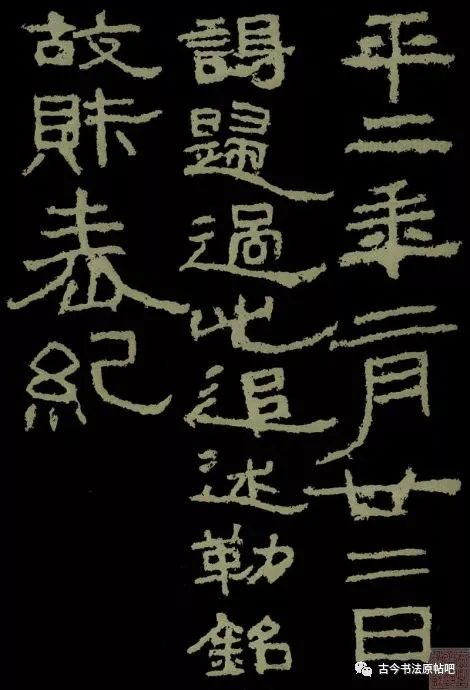 平二年二月廿二日
謁歸過此追述勒銘
故財表紀
古今书法原帖吧